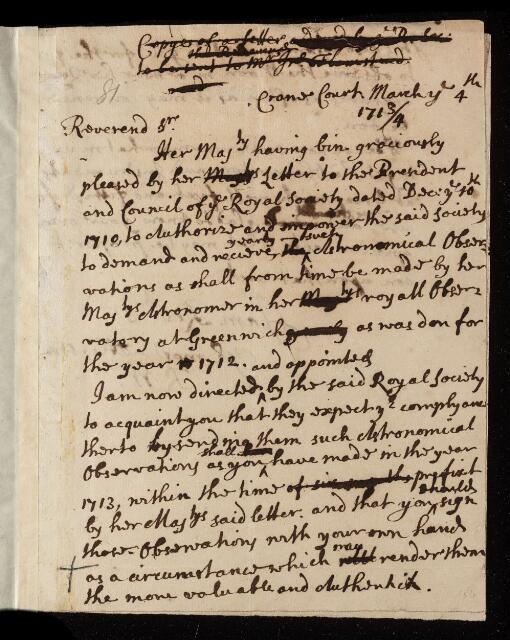 Copye of a letter
to be sent to Mr Jno Flamsteed.
Crane Court March ye 4th
171¾
Reverend Sr.
Her Majty having bin graciously
pleased by her Letter to the President
and Council of ye Royal Society dated Decr ye 10th
1710, to Authorize and impower the said Society
to demand and recieve yearly such Astronomical Obser-
vations as shall from time be made by her
Majtys Astronomer in her royall Obser-
vatory at Greenwich as was don for
the year 1712. and appointed
I am now directed by the said Royal Society
to acquaint you that they expect ye complyance
therto by sending them such Astronomical
Observations as you shall have made in the year
1713, within the time prefixt
by her Majtys said letter. and that you should sign
those Observations with your own hand
as a circumstance which may render them
the more valuable and Authentick.